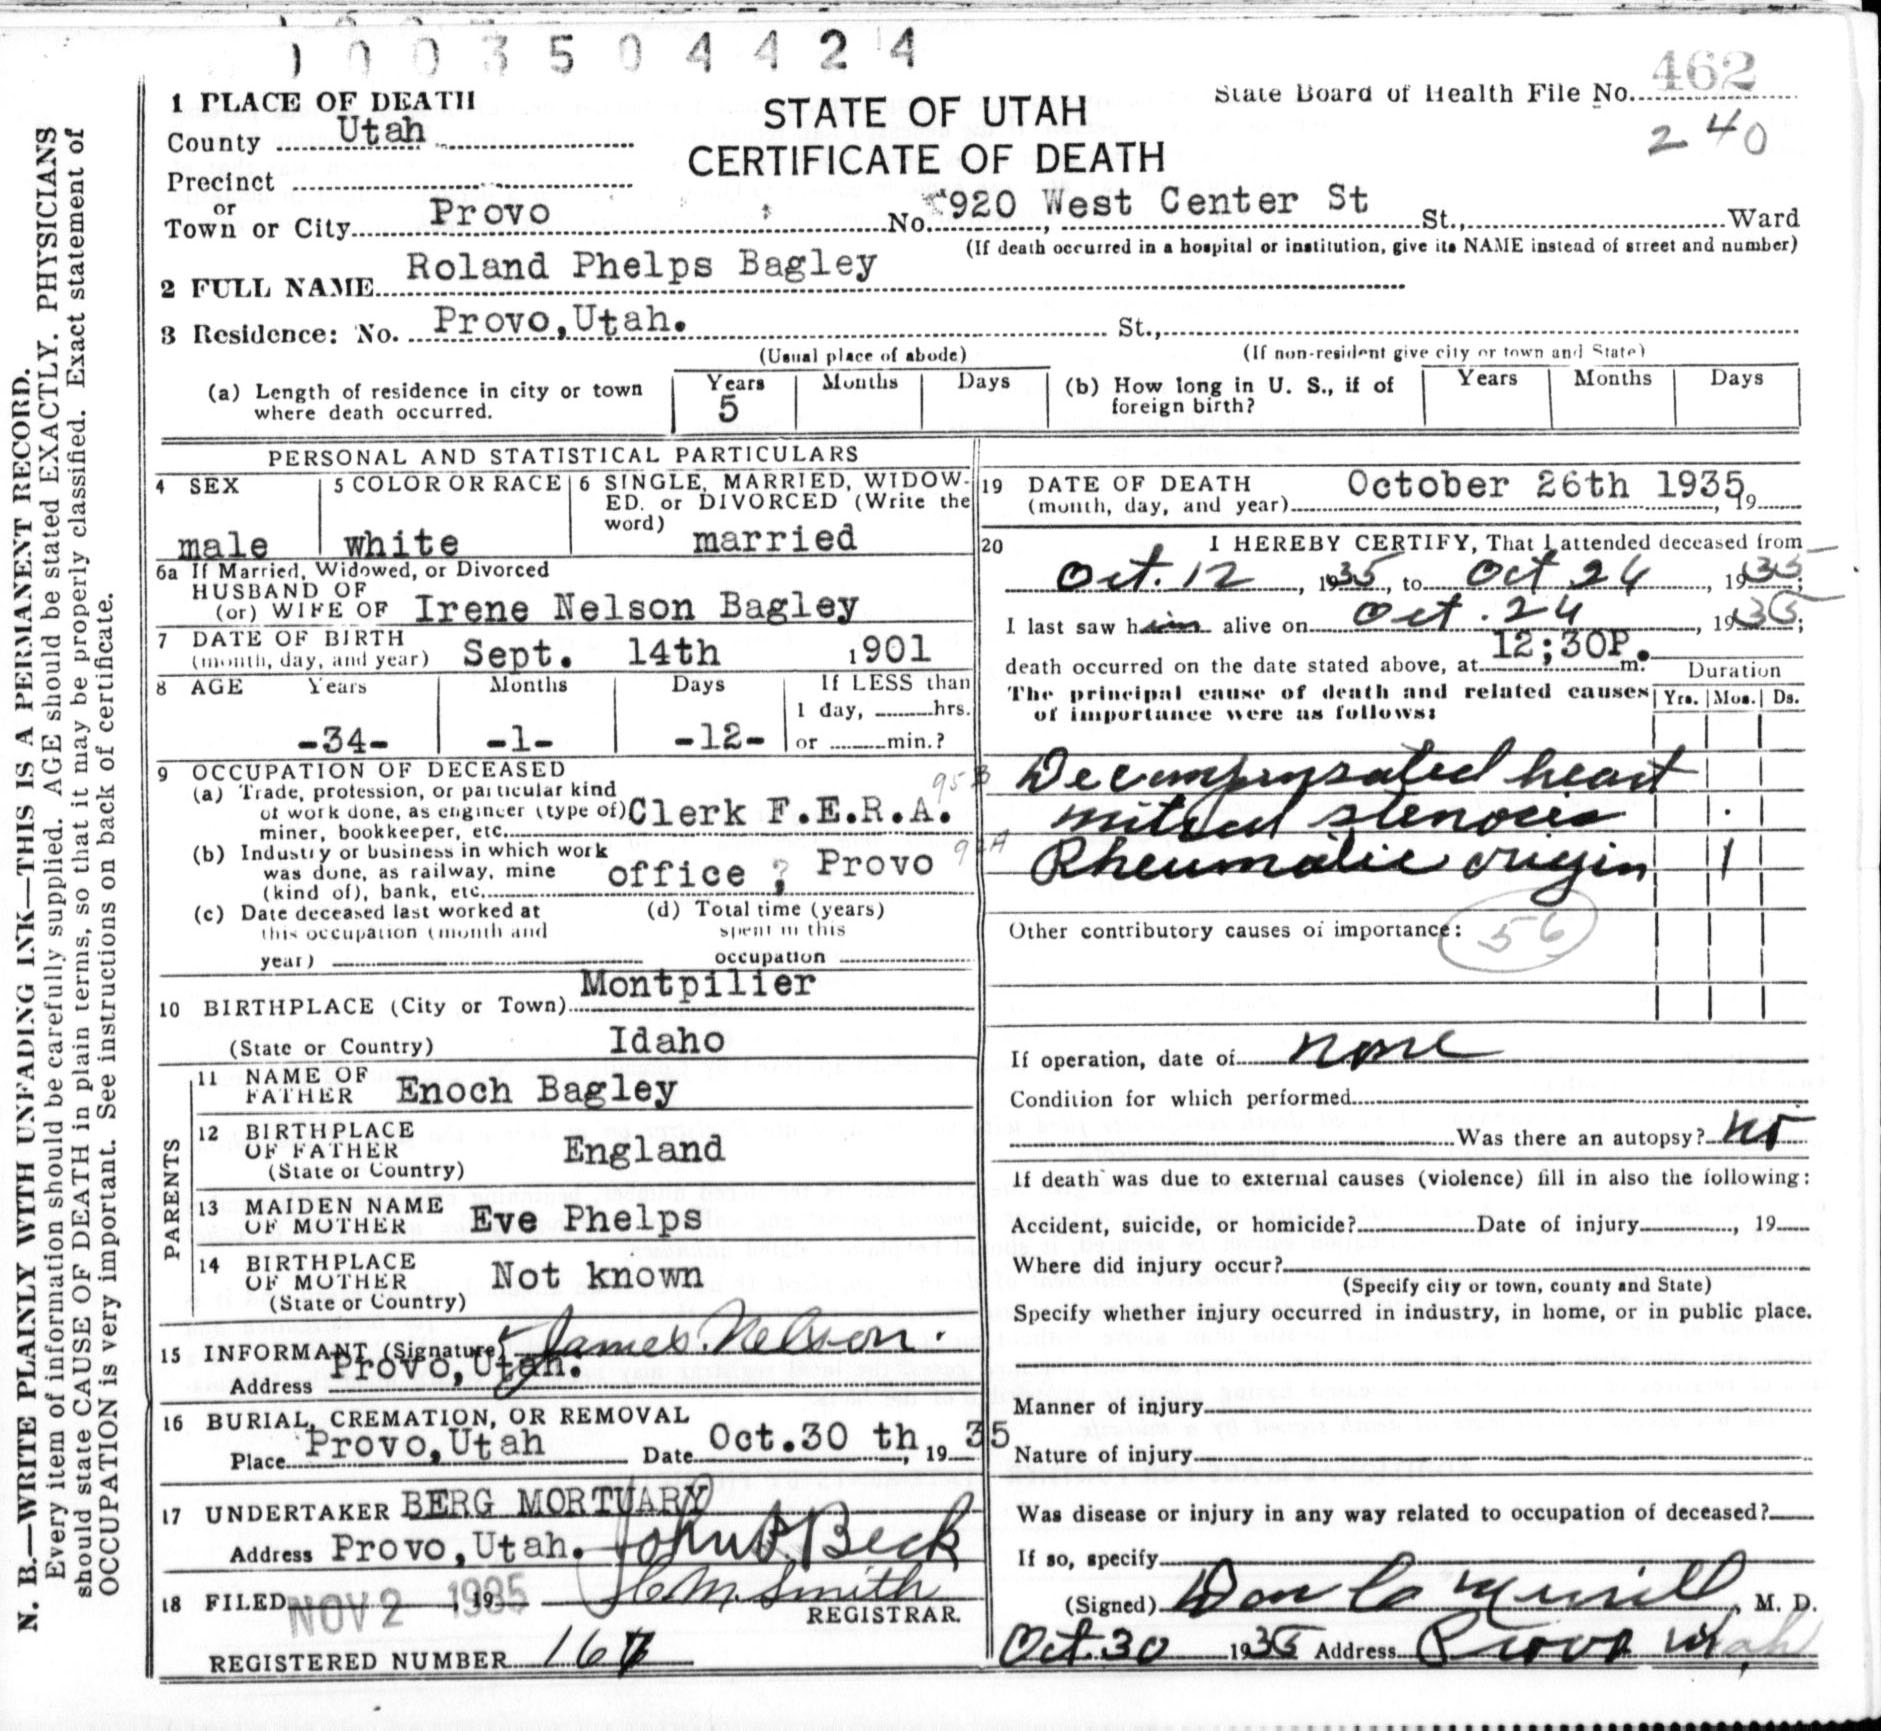 1003504424
462
State Board of Health File No.
240
1 PLACE OF DEATH
County Utah
STATE OF UTAH
CERTIFICATE OF DEATH
Precinct
or
Town or City Provo No. 920 West Center St St., Ward
(If death occurred in a hospital or institution, give its NAME instead of street and number)
2 FULL NAME Roland Phelps Bagley
3 Residence: No. Provo,Utah. St.,
(Usual place of abode) (If non-resident give city or town and State)
(a) Length of residence in city or town where death occurred. Years 5 Months Days
(b) How long in U. S., if of foreign birth? Years Months Days
PERSONAL AND STATISTICAL PARTICULARS
4 SEX
male
5 COLOR OR RACE
white
6 SINGLE, MARRIED, WIDOW-
ED, or DIVORCED (Write the
word)
married
6a If Married, Widowed, or Divorced
HUSBAND OF
(or) WIFE OF Irene Nelson Bagley
7 DATE OF BIRTH
(month, day, and year) Sept. 14th 1901
8 AGE Years Months Days If LESS than
1 day, hrs.
-34- -1- -12- or min.?
9 OCCUPATION OF DECEASED
(a) Trade, profession, or particular kind
of work done, as engineer (type of) Clerk F.E.R.A.
miner, bookkeeper, etc.
(b) Industry or business in which work
was done, as railway, mine office ; Provo
(kind of), bank, etc.
(c) Date deceased last worked at
this occupation (month and
year)
(d) Total time (years)
spent in this
occupation
10 BIRTHPLACE (City or Town) Montpilier
(State or Country) Idaho
PARENTS
11 NAME OF
FATHER Enoch Bagley
12 BIRTHPLACE
OF FATHER England
(State or Country)
13 MAIDEN NAME
OF MOTHER Eve Phelps
14 BIRTHPLACE
OF MOTHER Not known
(State or Country)
15 INFORMANT (Signature) James Nelson.
Address Provo,Utah.
16 BURIAL, CREMATION, OR REMOVAL
Place Provo,Utah Date Oct.30 th, 19 35
17 UNDERTAKER BERG MORTUARY
Address Provo,Utah. John S. Beck
18 FILED NOV 2 1935 19 C M Smith
REGISTRAR.
REGISTERED NUMBER 167
19 DATE OF DEATH
(month, day, and year) October 26th 1935, 19
20 I HEREBY CERTIFY, That I attended deceased from
Oct. 12, 1935, to Oct 24, 1935;
I last saw him alive on Oct. 24, 1935;
death occurred on the date stated above, at 12;30P. m.
The principal cause of death and related causes
of importance were as follows:
Duration
Yrs. Mos. Ds.
95B Decompensated heart
mitral stenosis
92A Rheumatic origin 1
Other contributory causes of importance: 56
If operation, date of none
Condition for which performed
Was there an autopsy? no
If death was due to external causes (violence) fill in also the following:
Accident, suicide, or homicide? Date of injury , 19
Where did injury occur?
(Specify city or town, county and State)
Specify whether injury occurred in industry, in home, or in public place.
Manner of injury
Nature of injury
Was disease or injury in any way related to occupation of deceased?
If so, specify
(Signed) Don C Merrill, M. D.
Oct.30 1935 Address Provo Utah
N. B.—WRITE PLAINLY WITH UNFADING INK—THIS IS A PERMANENT RECORD.
Every item of information should be carefully supplied. AGE should be stated EXACTLY. PHYSICIANS
should state CAUSE OF DEATH in plain terms, so that it may be properly classified. Exact statement of
OCCUPATION is very important. See instructions on back of certificate.